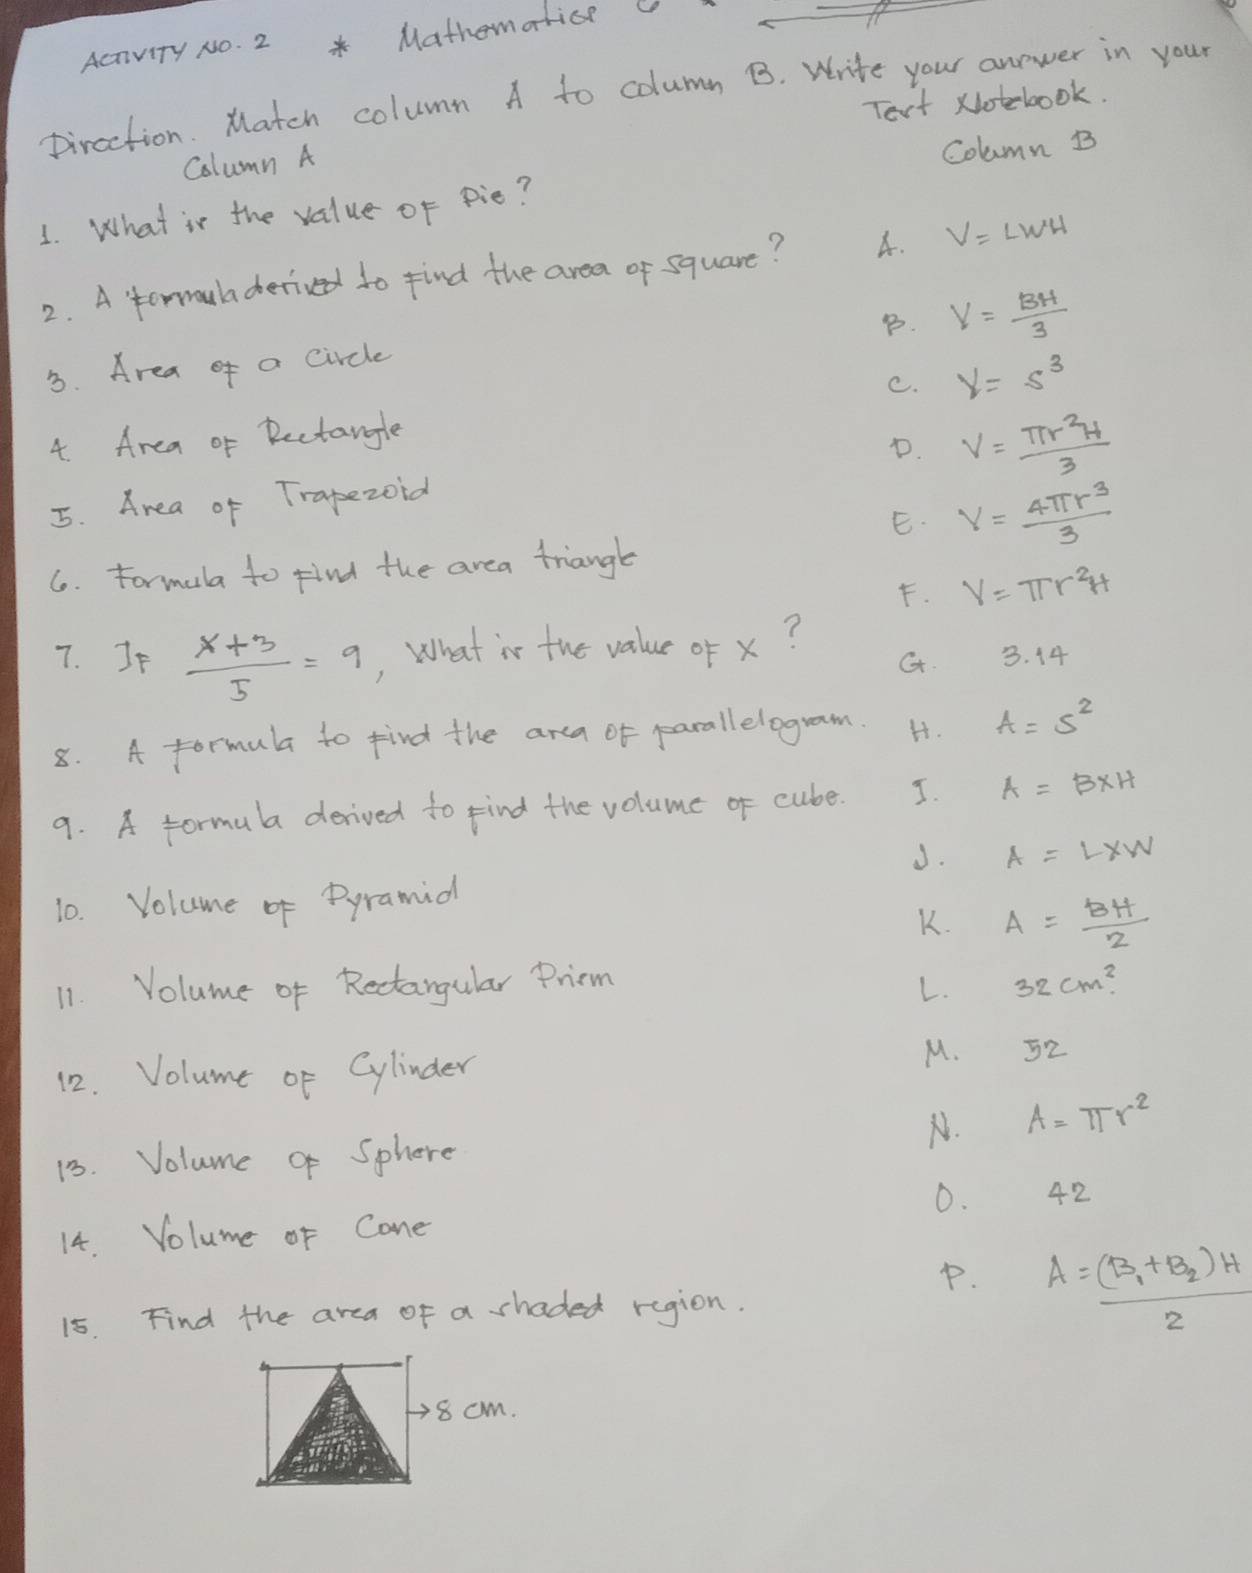 ACTIVITY NO. 2 * Mathematics 6 *
Direction. Match column A to column B. Write your answer in your
Test Notebook.
Column A
Column B
1. What is the value of Pie?
2. A formula derived to find the area of square?
3. Area of a circle
4. Area of Rectangle
5. Area of Trapezoid
6. Formula to find the area triangle
7. If x+3/5 = 9, What is the value of x?
8. A formula to find the area of parallelogram.
9. A formula derived to find the volume of cube.
10. Volume of Pyramid
11. Volume of Rectangular Prism
12. Volume of Cylinder
13. Volume of Sphere
14. Volume of Cone
15. Find the area of a shaded region.
→8 cm.
A. V = LWH
B. V = BH/3
C. V = s³
D. V = πr²H/3
E. V = 4πr³/3
F. V = πr²H
G. 3.14
H. A = S²
I. A = BXH
J. A = LXW
K. A = BH/2
L. 32 cm².
M. 52
N. A = πr²
O. 42
P. A = (B₁+B₂)H/2